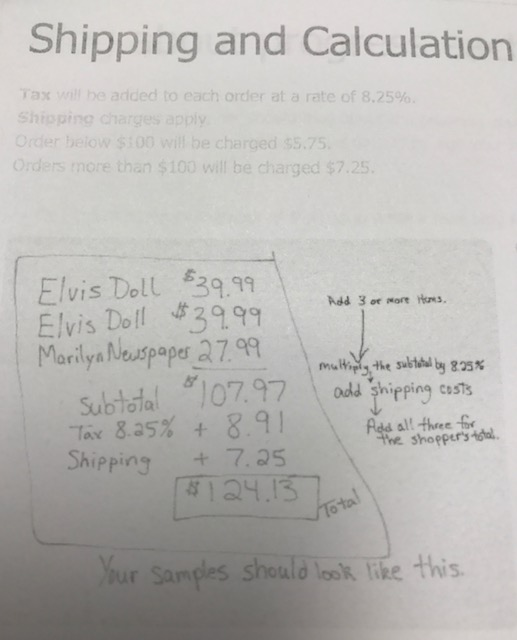 Shipping and Calculation
Tax will be added to each order at a rate of 8.25%.
Shipping charges apply.
Order below $100 will be charged $5.75.
Orders more than $100 will be charged $7.25.
Elvis Doll $39.99
Elvis Doll $39.99
Marilyn Newspaper 27.99
Subtotal $107.97
Tax 8.25% + 8.91
Shipping + 7.25
$124.13 Total
Add 3 or more items.
multiply the subtotal by 8.25%
add shipping costs
Add all three for
the shopper's total.
Your samples should look like this.